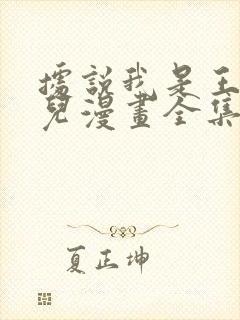 據說我是王
兒漫畫全集
夏正坤